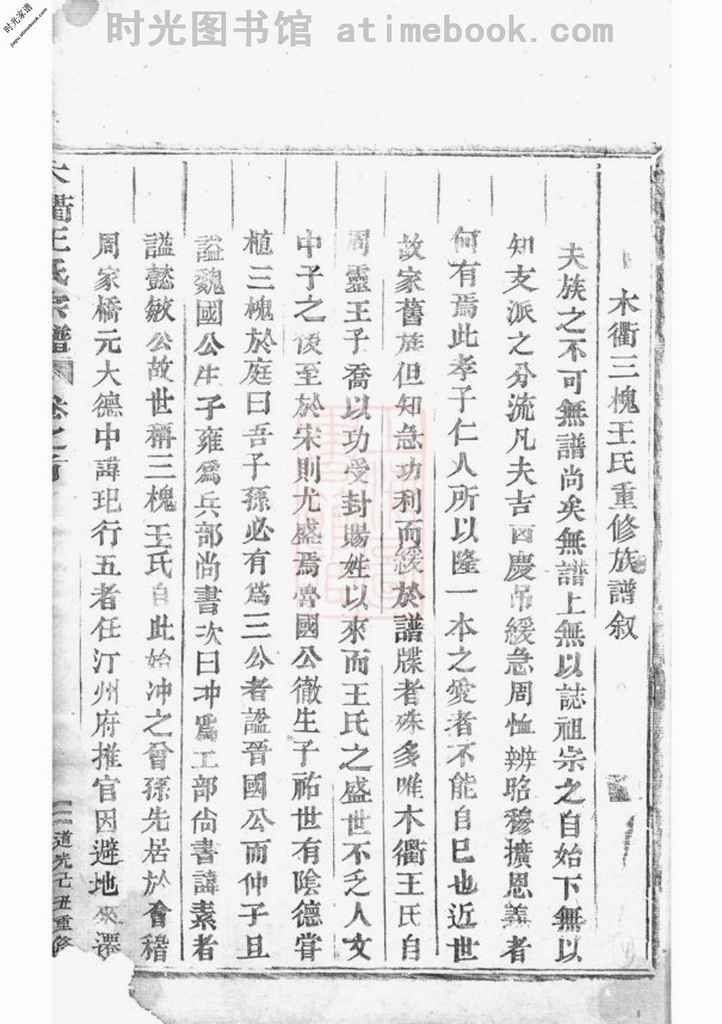 时光家谱
jiapu.atimebook.com
时光图书馆 atimebook.com
木衢三槐王氏重修族譜叙
夫族之不可無譜尚矣無譜上無以誌祖宗之自始下無以
知支派之分流凡夫吉凶慶吊緩急周恤辨昭穆擴恩義者
何有焉此孝子仁人所以隆一本之愛者不能自已也近世
故家舊族但知急功利而緩於譜牒者殊多唯木衢王氏自
周靈王子喬以功受封賜姓以來而王氏之盛世不乏人文
中子之後至於宋則尤盛焉魯國公徹生子祐世有陰德嘗
植三槐於庭曰吾子孫必有為三公者謚晉國公而仲子旦
謚魏國公生子雍為兵部尚書次曰冲為工部尙書諱素者
謚懿敏公故世稱三槐王氏自此始冲之曾孫先居於會稽
周家橋元大德中諱玘行五者任汀州府推官因避地來
木衢王氏宗譜 卷之首 道光己丑重修